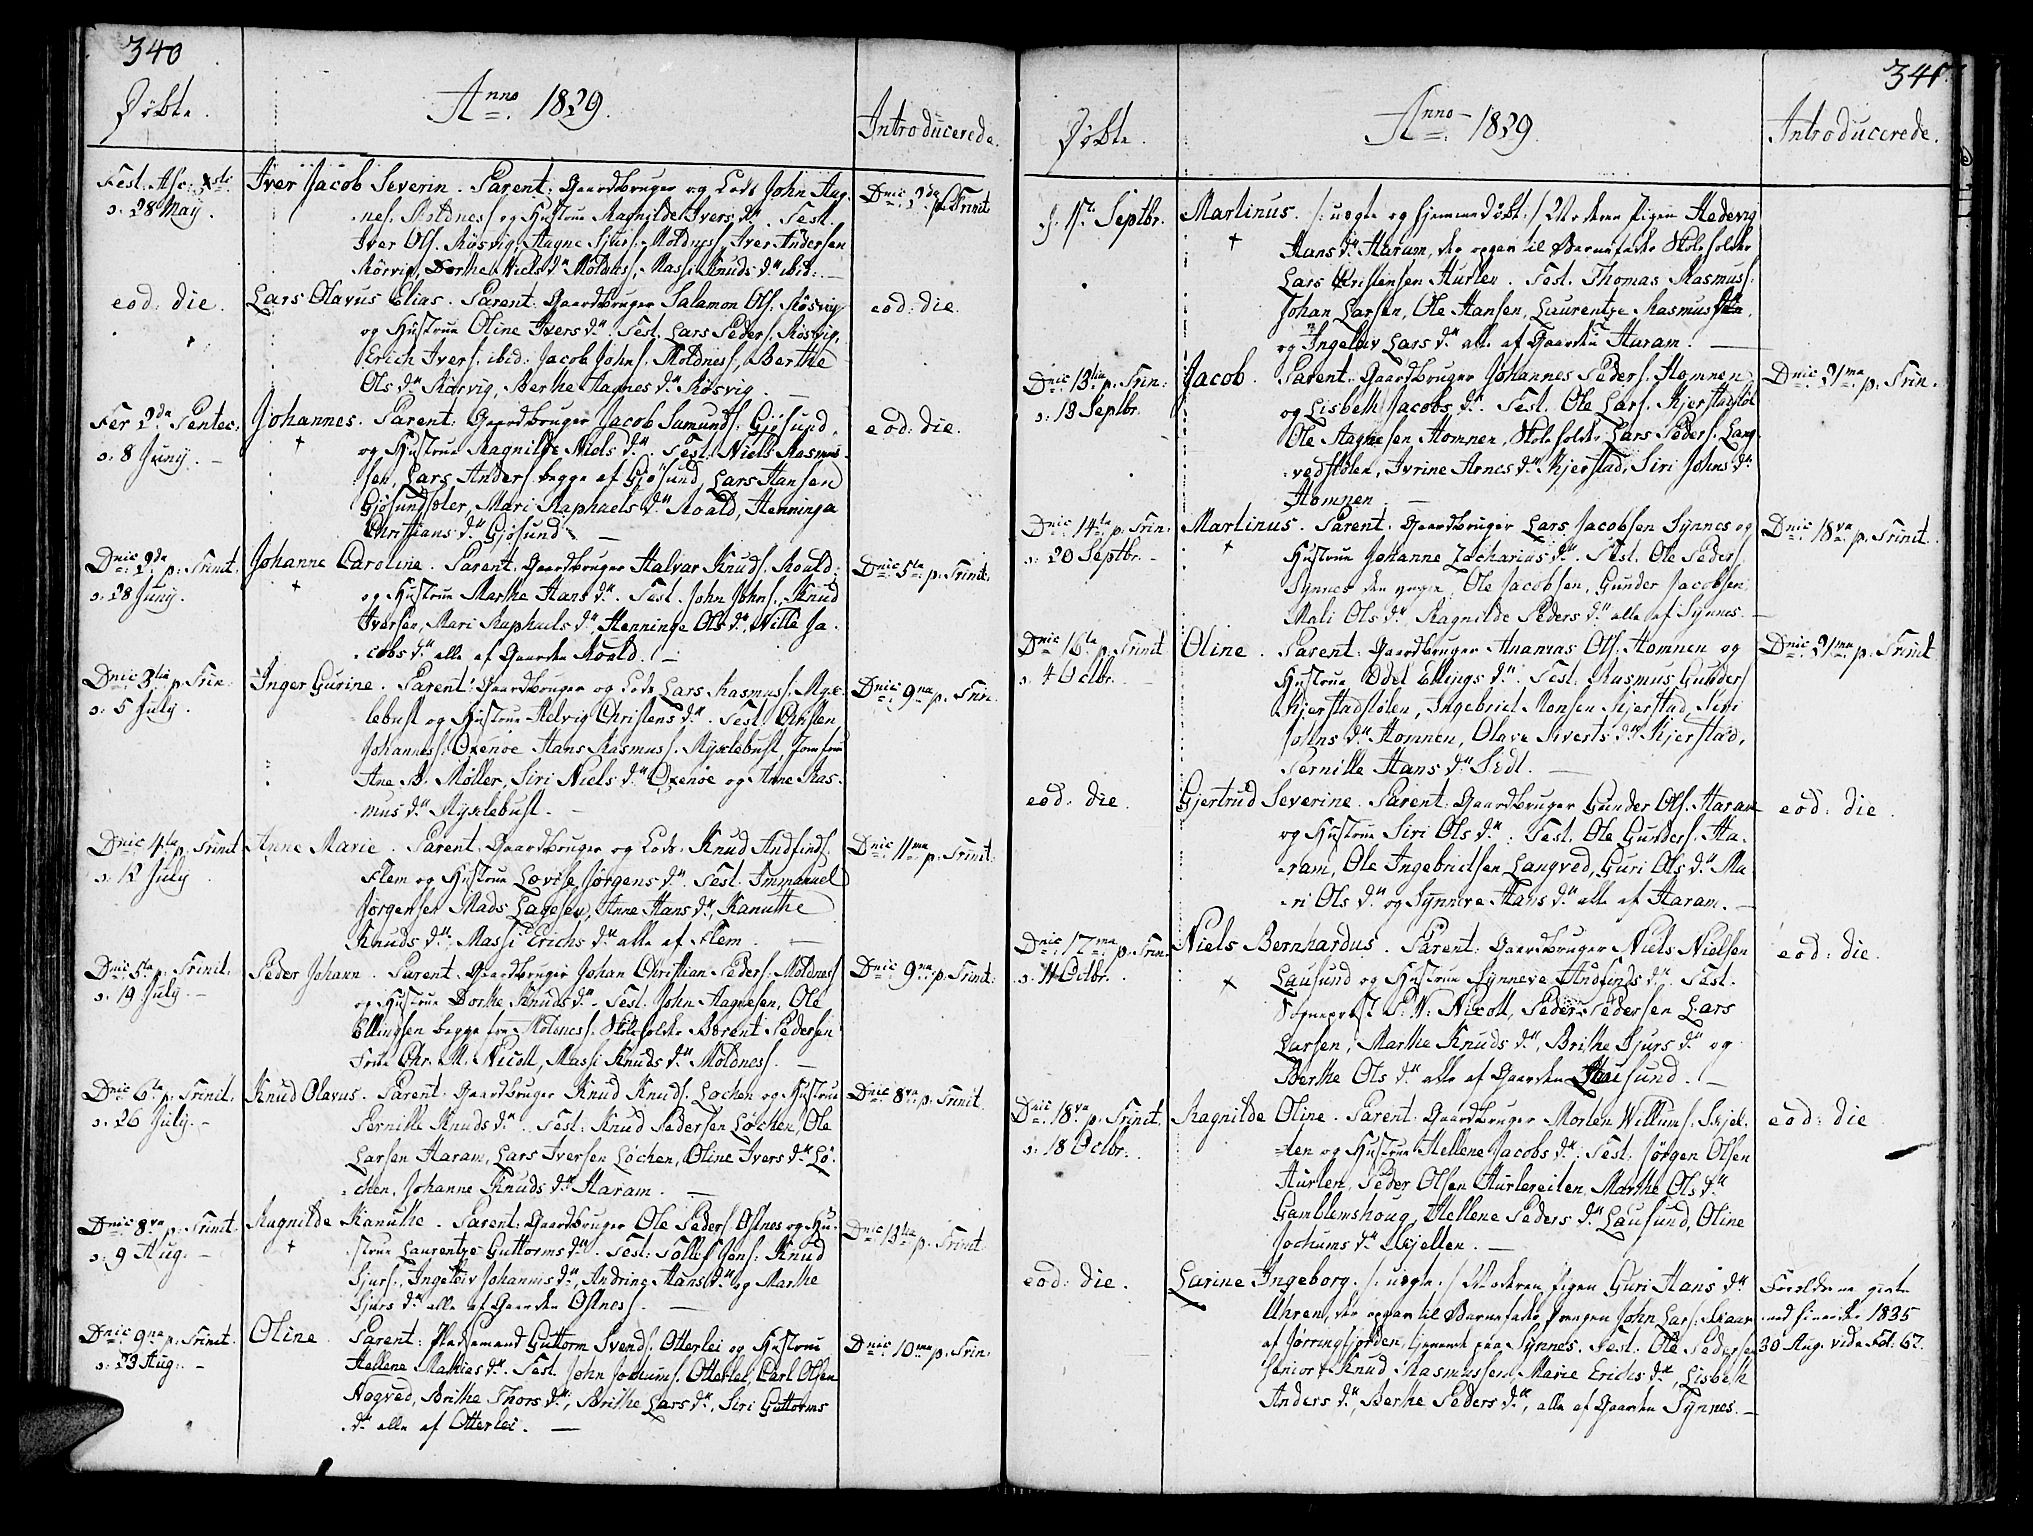 340
Døbte.
Anno 1829.
Introducerede.
Fest. Asc. Xsti
d. 28 May.
Iver Jacob Severin. Parent: Gaardbruger og Lods John Aag-
nes. Moldness og Hustrue Ragnilde Ivers dtr. Test.
Iver Ols. Røsvig, Aagne Sjurs. Moldness, Iver Andersen
Rørvig, Dorthe Niels dtr Moldness, Massi Knuds dtr ibid: —
Dnic 2da p. Trinit
eod: die.
Lars Olavus Elias. Parent: Gaardbruger Salamon Ols. Røsvig
og Hustrue Oline Ivers dtr. Test. Lars Peders. Røsvig,
Erich Ivers. ibid: Jacob Johns. Moldness, Berthe
Ols dtr Rørvig, Berthe Aagnes dtr Røsvig. —
eod: die.
Fer 2da Pentec.
d. 8 Juny. —
Johannes. Parent: Gaardbruger Jacob Samunds. Gjøsund,
og Hustrue Ragnilde Niels dtr. Test: Niels Rasmus-
sen, Lars Anders. begge af Gjøsund, Lars Hansen
Gjøsundsæter, Mari Raphaels dtr Roald, Henninga
Christians dtr Gjøsund —
eod: die.
Dnic 2da p: Trinit.
d. 28 Juny.
Johanne Caroline. Parent: Gaardbruger Halvar Knuds. Roald,
og Hustrue Marthe Hans dtr. Test. John Johns., Knud
Iversen, Mari Raphaels dtr, Henninge Ols dtr, Nille Ja-
cobs dtr alle af Gaarden Roald. —
Dnic 5ta p: Trinit.
Dnic 3tia p. Trin.
d. 5 July.
Inger Gurine. Parent: Gaardbruger og Lods Lars Rasmuss. Myx-
lebust og Hustrue Helvig Christens dtr. Test. Christen
Johanness. Oxenøe Hans Rasmuss. Myxlebust, Jomfrue
Ane B. Møller, Siri Niels dtr Oxenøe og Anne Ras-
mus dtr Myxlebust. —
Dnic 9na p. Trin.
Dnic 4ta p. Trinit
d. 12 July
Anne Marie. Parent: Gaardbruger og Lods. Knud Andfinds.
Flem og Hustrue Lovise Jørgens dtr. Test. Immanuel
Jørgensen Mads Lagesen, Anne Hans dtr, Kanuthe
Knuds dtr. Massi Erichs dtr alle af Flem. —
Dnic 11ma p. Trinit.
Dnic 5ta p. Trinit.
d. 19 July. —
Peder Johann. Parent. Gaardbruger Johan Christian Peders. Moldness
og Hustrue Dorthe Knuds dtr. Test. John Aagnesen, Ole
Ellingsen begge fra Moldness. Skoleholder Børent Pedersen
Frue Chr. M. Nicoll, Massi Knuds dtr Moldness. —
Dnic 9na p. Trinit.
Dnic 6ta p. Trinit.
d. 26 July. —
Knud Olavus. Parent. Gaardbruger Knud Knuds. Løchen og Hustrue
Pernille Knuds dtr. Test: Knud Pedersen Løchen, Ole
Larsen Haram, Lars Iversen Løchen, Oline Ivers dtr Lø-
chen, Johanne Knuds dtr Haram. —
Dnic 8va p. Trinit.
Dnic 8va p. Trinit.
d. 9 Aug. —
Ragnilde Kanuthe. Parent: Gaardbruger Ole Peders. Ostnes og Hu-
strue Laurentze Guttorms dtr. Test: Tollef Jens. Knud
Sjurs., Ingebiv Johannis dtr, Andrine Hans dtr og Marthe
Sjurs dtr alle af Gaarden Ostness. —
Dnic 13tia p. Trinit.
Dnic 9na p. Trinit.
d. 23 Aug. —
Oline. Parent: Pladsemand Guttorm Svends. Otterlei og Hustrue
Hellene Mathias dtr. Test. John Jochums. Otterlei, Carl Olsen
Hagved, Brithe Thors dtr, Brithe Lars dtr, Siri Guttorms
dtr alle af Otterlei. —
Dnic 10ma p. Trin.
341
Døbte.
Anno 1829.
Introducerede.
Septbr.
Martinus. /: uægte og hjemmedøbt :/ Moderen Pigen Hedevig
Hans dtr Haram, der opgav til Barnefader Skoleholder
Lars Christensen Hurlen. Test. Thomas Rasmuss.
Johan Larsen, Ole Hansen, Laurentze Rasmus dtr,
og Ingebiv Lars dtr alle af Gaarden Haram. —
Dnic 13tia p. Trin:
d. 13 Septbr.
Jacob. Parent. Gaardbruger Johannes Peders. Homnen
og Lisbeth Jacobs dtr. Test. Ole Lars. Kjerstadstøl
Ole Aagnesen Homnen, Skoleholder Lars Peders. Lang-
vedstølen, Ivrine Arnes dtr Kjerstad, Siri Johns dtr
Homnen. —
Dnic 21ma p. Trin.
Dnic 14ta p. Trin:
d. 20 Septbr. —
Martinus. Parent. Gaardbruger Lars Jacobsen Synnes og
Hustrue Johanne Zacharias dtr. Test. Ole Peders.
Synnes den yngre, Ole Jacobsen, Gunder Jacobsen,
Mali Ols dtr Ragnilde Peders dtr alle af Synnes. —
Dnic 18va p. Trinit.
Dnic 16ta p. Trinit
d. 4 Octbr. —
Oline. Parent. Gaardbruger Ananias Ols. Homnen og
Hustrue Odel Ellings dtr. Test. Rasmus Gunders.
Kjerstadstølen, Ingebriet Monsen Kjerstad, Siri
Johns dtr Homnen, Olave Siverts dtr Kjerstad,
Pernille Hans dtr —
Dnic 21ma p. Trinit
eod: die.
Gjertrud Severine. Parent: Gaardbruger Gunder Ols. Haram
og Hustrue Siri Ols dtr. Test. Ole Gunders. Ha-
ram, Ole Ingebrietsen Langved, Guri Ols dtr Ma-
ri Ols dtr og Synneve Hans dtr alle af Haram. —
eod: die.
Dnic 17ma p. Trin.
d. 11 Octbr.
Niels Bernhardus. Parent: Gaardbruger Niels Nielsen
Lausund og Hustrue Synneve Andfinds dtr. Test.
Sognepræst P. N: Nicoll, Peder Pedersen Lars
Larsen, Marthe Knuds dtr, Brithe Sjurs dtr og
Berthe Ols dtr alle af Gaarden Lausund. —
eod: die.
Dnic 18va p. Trinit.
d. 18 Octbr. —
Ragnilde Oline. Parent: Gaardbruger Morten Willums. Skjel-
ten og Hustrue Hellene Jacobs dtr. Test. Jørgen Olsen
Hurlen, Peder Olsen Hurlereiten, Marthe Ols dtr
Gamblemshoug, Hellene Peders dtr Lausund, Oline
Jochums dtr Skjelten. —
eod: die
eod: die.
Larine Ingeborg. /: uægte :/ Moderen Pigen Guri Hans dtr
Uhren, der opgav til Barnefader Drengen John Lars. Skaar
af Jørringfjorden, tjenende paa Synnes. Test. Ole Pedersen
Senior, Knud Rasmussen, Marie Erichs dtr, Lisbeth
Anders dtr, Berthe Peders dtr, alle af Gaarden Synnes. —
Forældrene givte
med hinanden 1835
30 Aug. vide Fol: 67.